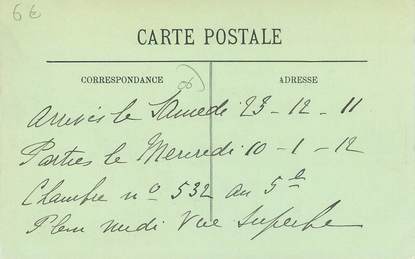 6€
CARTE POSTALE
CORRESPONDANCE
ADRESSE
06
Arrivés le Samedi 23-12-11
Parties le Mercredi 10-1-12
Chambre n° 532 au 5e
Plein midi Vue Superbe